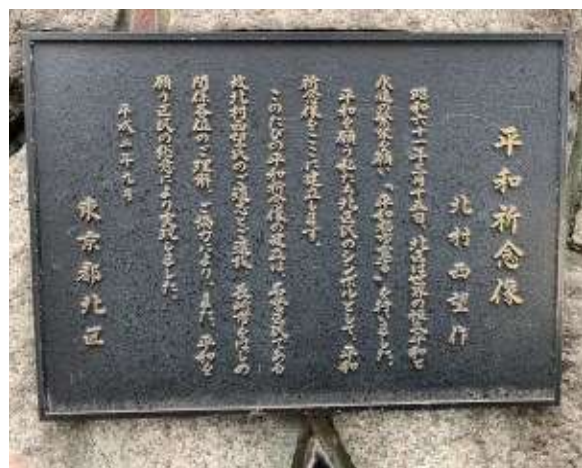 平和祈念像
北村西望作
昭和六十一年三月十五日、北区は世界の恒久平和と
永遠の繁栄を願い「平和都市宣言」を行いました。
平和を願う私たち北区民のシンボルとして、平和
祈念像をここに建立します。
このたびの平和祈念像の建立は、名誉区民である
故北村西望氏のご遺志とご遺族、長崎市をはじめ
関係各位のご理解、ご協力により、また、平和を
願う区民の熱意により実現しました。
平成二年九月
東京都北区